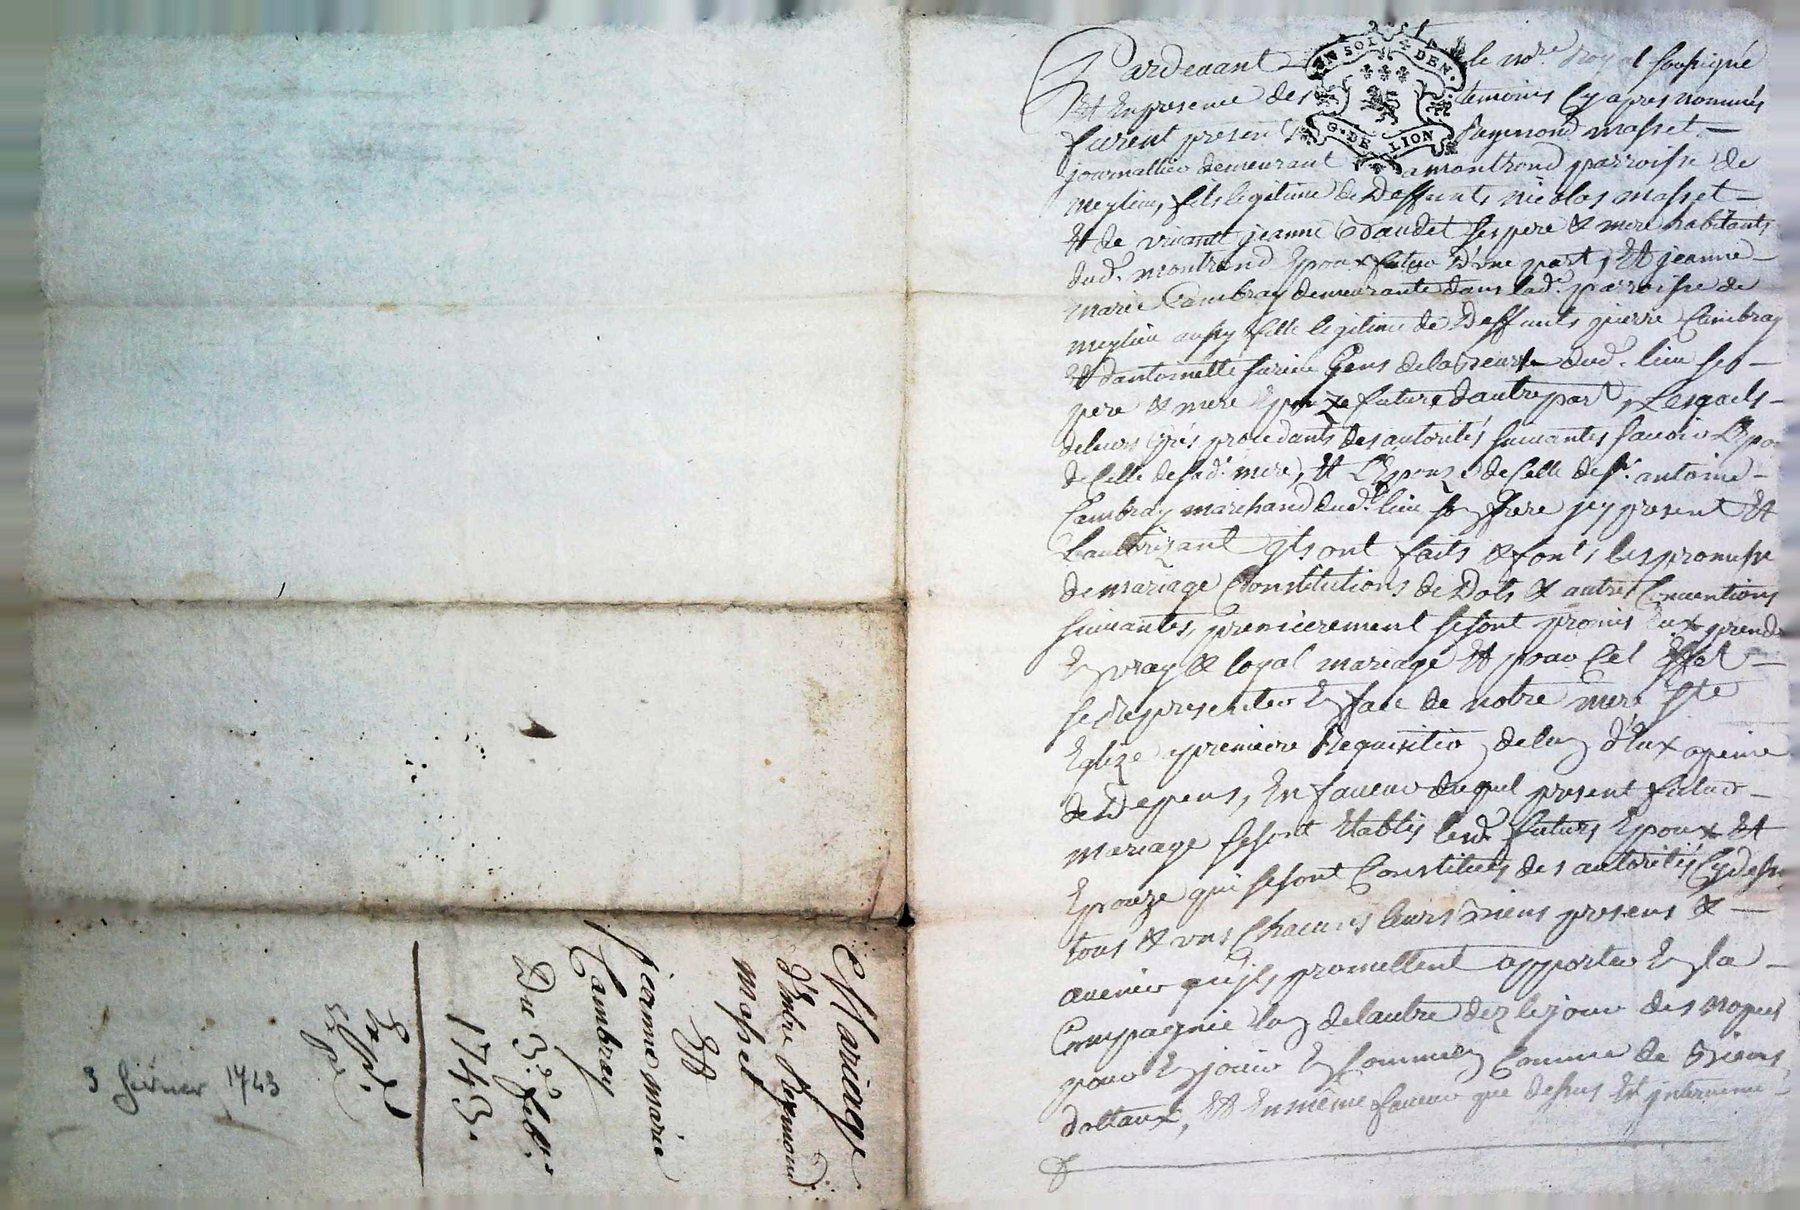 Mariage
d'Entre Reymond
Masset
Et
jeanne marie
Cambray
Du 3e febr.
1743.
Exp.
3 février 1743
EN SOI G. DE LION DEN.
Pardevant le nore. royal soussigné
Et En presence des temoins Cy apres nommés
furent presents Reymond masset
journallier demeurant a montrond parroisse de
meylieu, fils legitime de Deffunt, nicolas masset
Et de vivante jeanne Daudet ses pere & mere habitants
dud. montrond Epoux futur d'une part, Et jeanne
marie Cambray demeurante dans lad. parroisse de
meylieu aussy fille legitime de Deffunts pierre Cambray
Et dantoinette gens de dud. lieu ses
pere & mere Epouze future dautre part, Lesquels
de leurs grés procedants des autorités suivantes savoir L'Epou
de Celle de sad. mere, Et L'Epouze de Celle de sr. antoine
Cambray marchand dud. lieu son frere jcy present Et
Lautorizant ont faits & font, les promesse
de mariage Constitutions de Dots & autres Conventions
suivantes, premierement se sont promis Eux prendre
En vray & loyal mariage Et pour Cet Effet
se Representer En face de notre mere Ste
Eglize a premiere Requisition de lun d'Eux a peine
de Depens, En faveur duquel present futur
mariage se sont Etablis lesd. futurs Epoux Et
Epouze qui se sont Constitués des autorités Cy dessu
tous & uns Chacuns leurs biens presens &
avenir qu'ils promettent apporter En la
Compagnie lun de lautre dez le jour des nopces
pour En jouir En Commun Comme de Biens
dottaux, Et En même faveur que dessus Est jntervenu